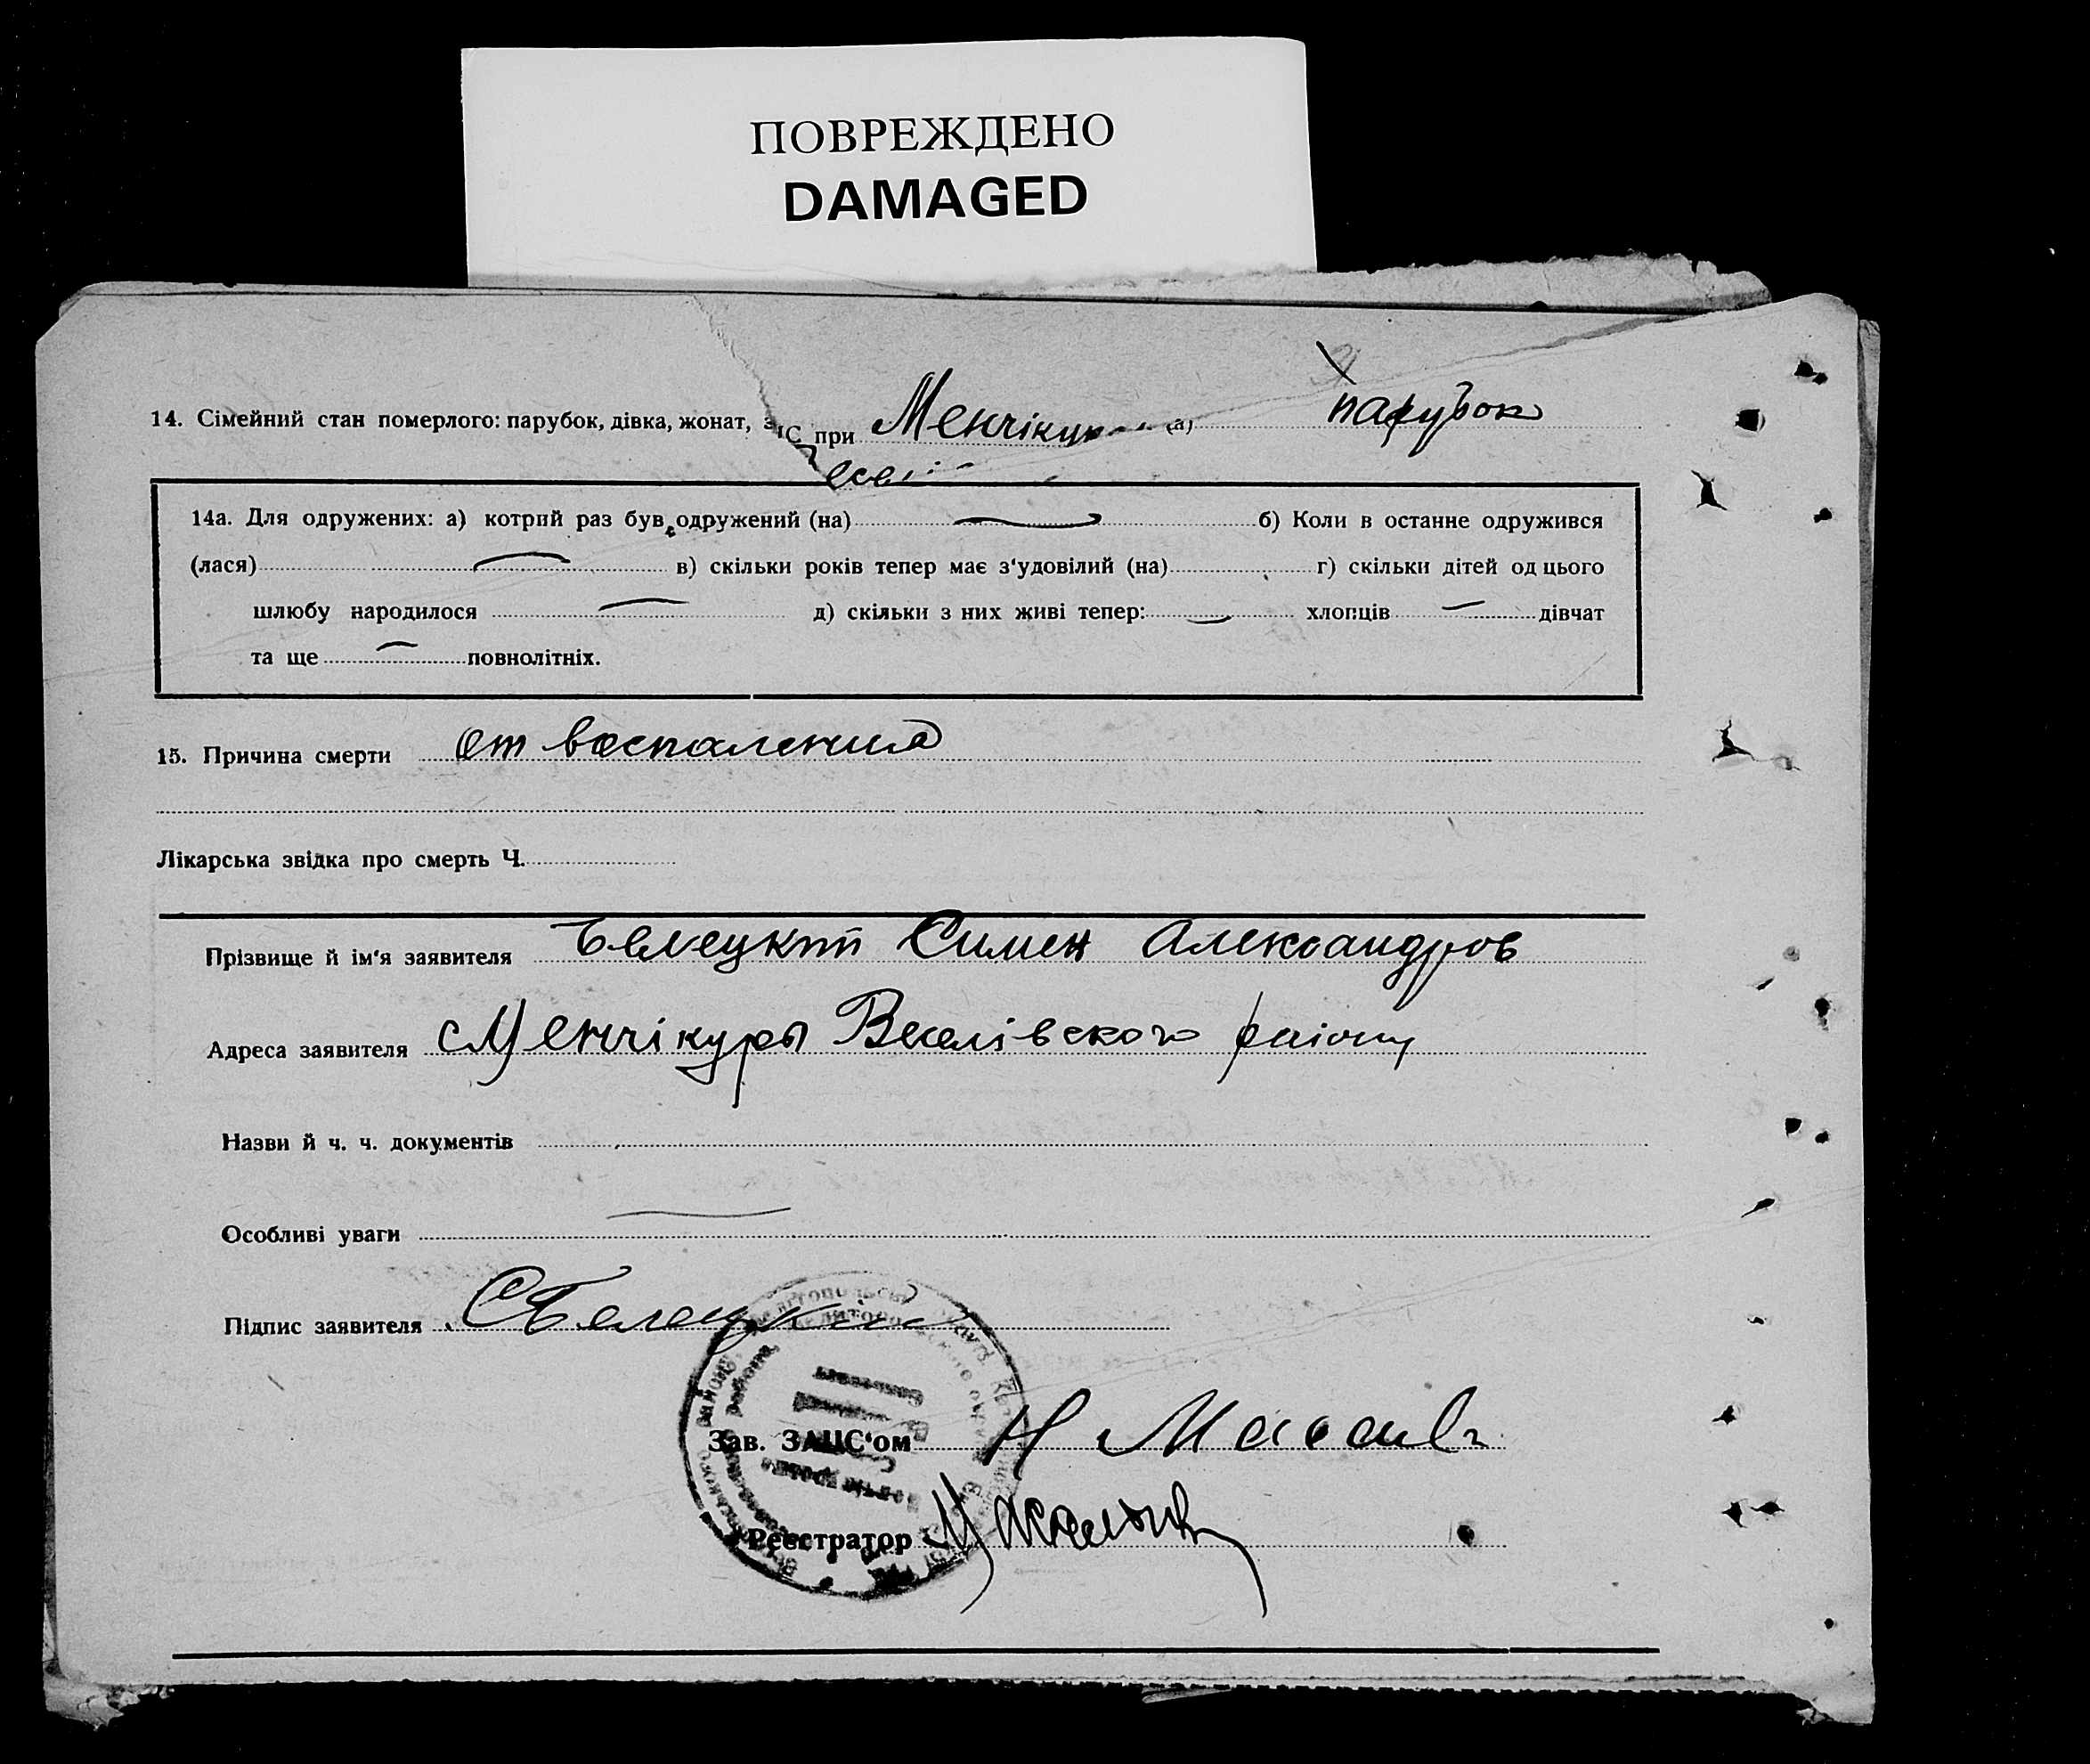 ПОВРЕЖДЕНО
DAMAGED
14. Сімейний стан померлого: парубок, дівка, жонат, з (а) парубок
ІС при Менчікур
14а. Для одружених: а) котрий раз був одружений (на) б) Коли в останне одружився
(лася) в) скільки років тепер має з'удовілий (на) г) скільки дітей од цього
шлюбу народилося д) скільки з них живі тепер: хлопців дівчат
та ще повнолітніх.
15. Причина смерти от воспаления
Лікарська звідка про смерть Ч.
Прізвище й ім'я заявителя Белецкий Симен Александров
Адреса заявителя с Менчікуры Веселівского району
Назви й ч. ч. документів
Особливі уваги
Підпис заявителя СБелецкий
Зав. ЗАЦС'ом Н
Реєстратор